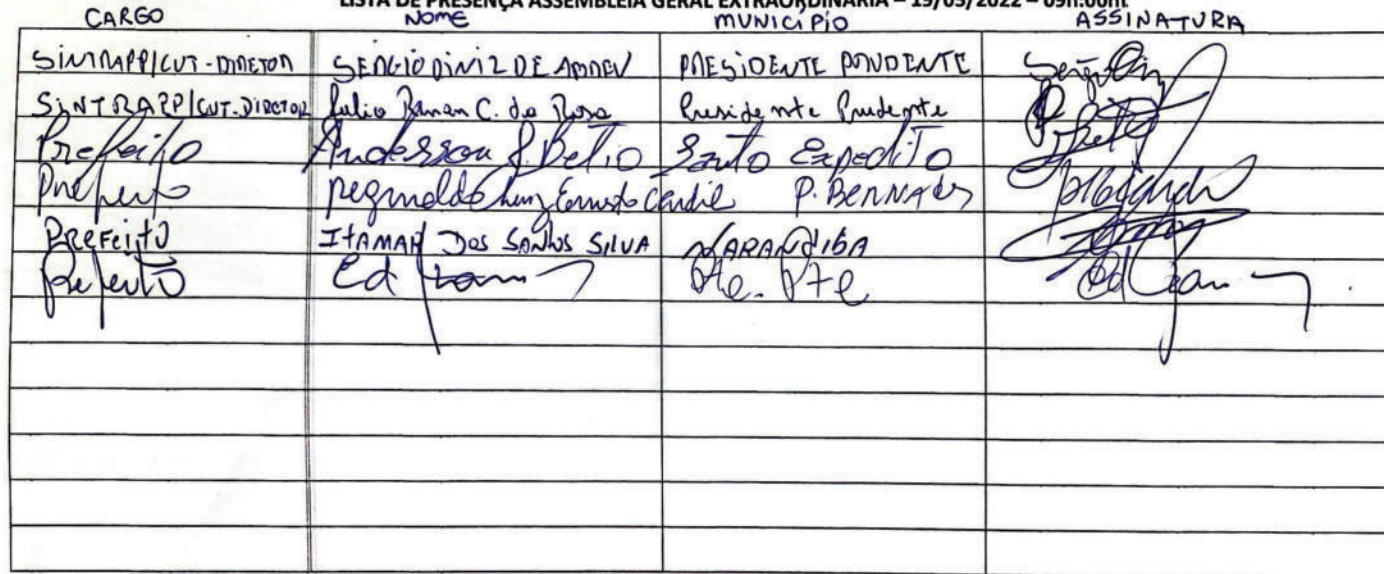 LISTA DE PRESENÇA ASSEMBLEIA GERAL EXTRAORDINÁRIA – 19/05/2022 – 09h:00m
CARGO NOME MUNICÍPIO ASSINATURA
SINTRAPP/CUT-DIRETOR SERGIO DINIZ DE ABREU PRESIDENTE PRUDENTE
SINTRAPP/CUT-DIRETOR Julio C. da Rosa Presidente Prudente
Prefeito Anderson Santo Expedito
Prefeito Reginaldo Luiz Ernesto Cardil P. BERNARDES
PREFEITO ITAMAR DOS SANTOS SILVA NARANDIBA
Prefeito Ed Pte. Pte